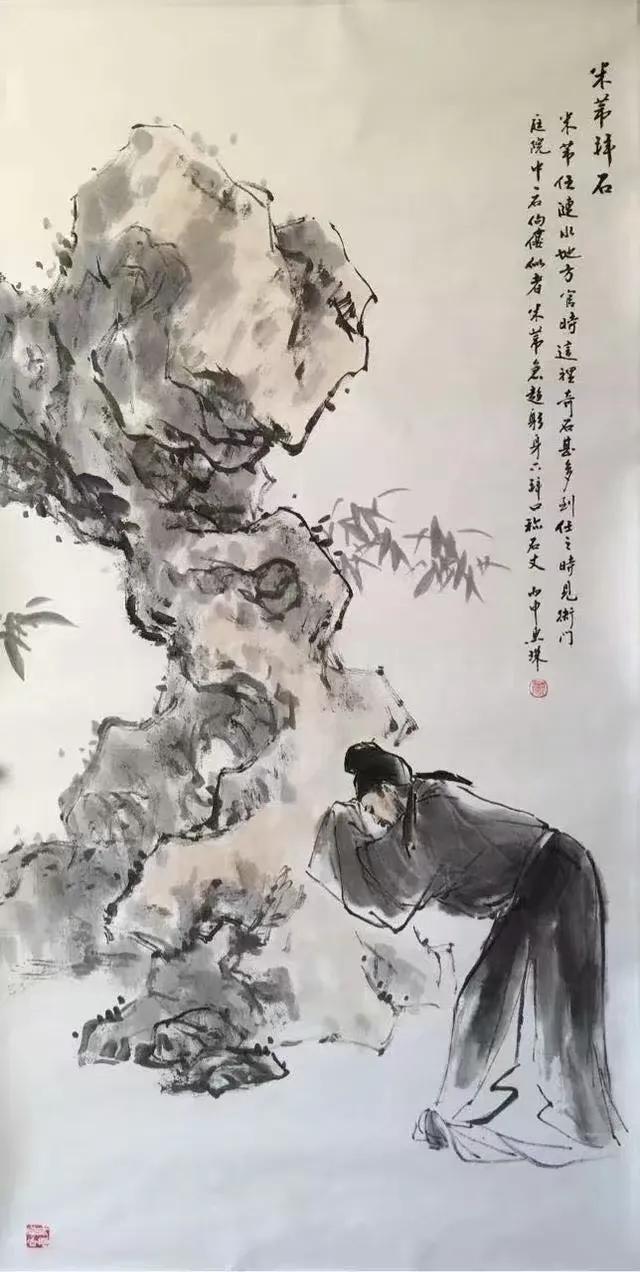 米芾拜石
米芾任漣水地方官時這裡奇石甚多到任之時見衙门
庭院中一石佝僂似者米芾急趋躬身下拜口称石丈 丙申